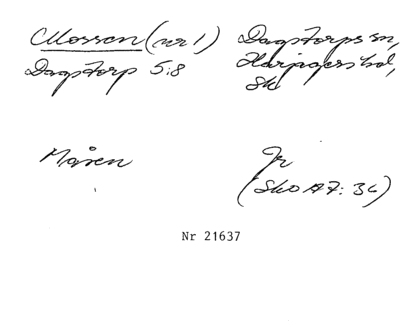 Mossen (nr 1) Dagstorps sn,
Dagstorp 5:8 Harjagers hd,
Sk
Måsen Jr
(SkO A7: 36)
Nr 21637